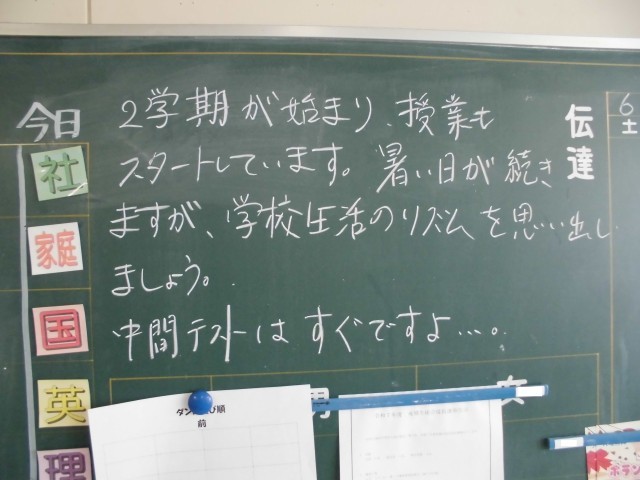 今日
社
家庭
国
英
理
2学期が始まり、授業も
スタートしています。暑い日が続き
ますが、学校生活のリズムを思い出し
ましょう。
中間テストはすぐですよ…。
伝達
6
土
前
女
ボラン